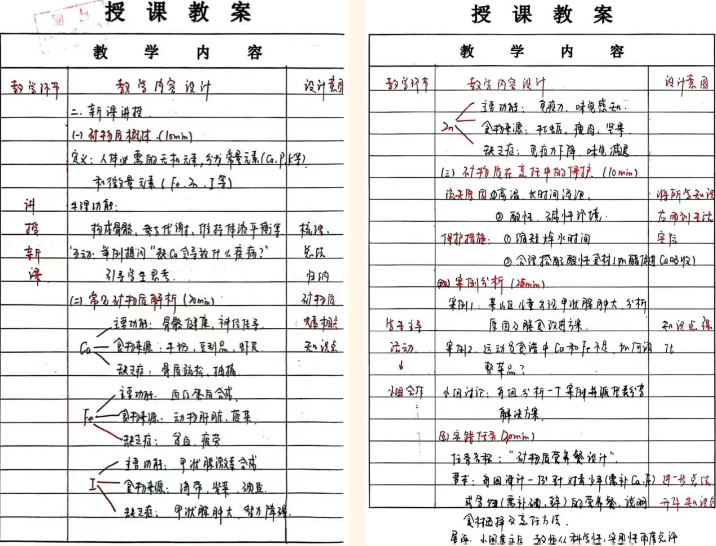 授课教案
教学内容
教学环节 教学内容设计 设计意图
二、新课讲授
(一) 矿物质概述 (10min)
定义：人体必需的无机元素，分为常量元素(Ca、P、K等)
和微量元素 (Fe、Zn、I等)
讲 生理功能：
授 构成骨骼，参与代谢，维持体液平衡等 梳理、
新 互动：举例提问“缺Ca会导致什么疾病？” 总结
课 引导学生思考 归纳
(二) 常见矿物质解析 (20min) 矿物质
主要功能：骨骼健康，神经传导 相关
Ca 食物来源：牛奶，豆制品，虾皮 知识点
缺乏症：骨质疏松，抽搐
主要功能：血红蛋白合成
Fe 食物来源：动物肝脏，菠菜
缺乏症：贫血，疲劳
主要功能：甲状腺激素合成
I 食物来源：海带，紫菜，碘盐
缺乏症：甲状腺肿大，智力障碍
授课教案
教学内容
教学环节 教学内容设计 设计意图
主要功能：免疫力，味觉感知
Zn 食物来源：牡蛎，瘦肉，坚果
缺乏症：免疫力下降，味觉减退
(三) 矿物质在烹饪中的保护 (10min)
流失原因：①高温、长时间浸泡 将所学知识
② 酸性、碱性环境 应用到生活
保护措施：① 缩短焯水时间 实际
② 合理搭配酸性食材(如醋促进Ca吸收)
(四) 案例分析 (25min)
案例1：某地区儿童出现甲状腺肿大，分析
学生主导 原因及膳食改进方案 知识点强
活动 案例2：运动员食谱中Ca和Fe不足，如何调 化
整菜品？
小组合作 小组讨论：每组分析一个案例并派代表分享
解决方案
(五) 实践任务 (20min)
任务名称：“矿物质营养餐设计”
要求：每组设计一份针对青少年(需补Ca、Fe) 进一步总结
或孕妇(需补碘、锌)的营养餐，说明 知识点
食材选择及烹饪方法